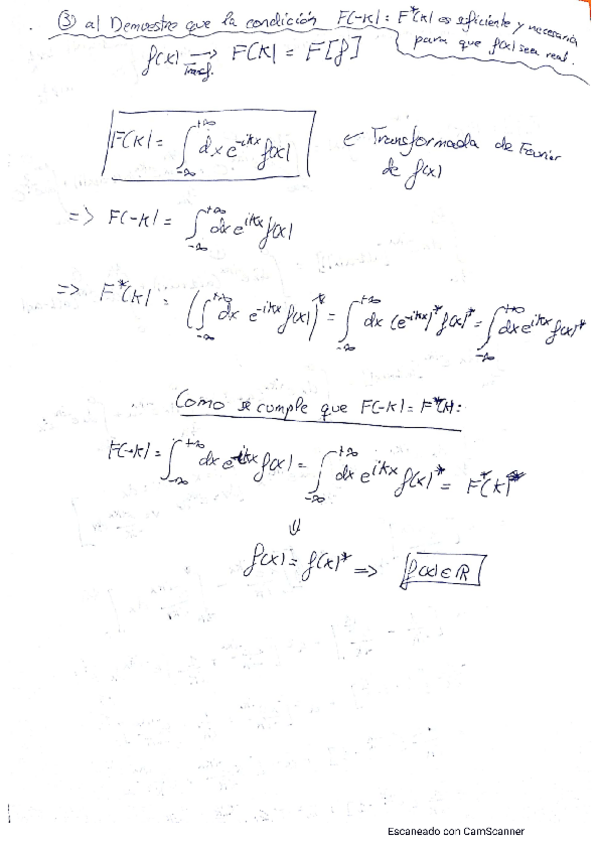 ③ a) Demuestre que la condición F(-k) = F*(k) es suficiente y necesaria
para que f(x) sea real.
f(x) → F(k) = F[f]
Transf.
F(k) = ∫_{-∞}^{+∞} dx e^{-ikx} f(x) ← Transformada de Fourier
de f(x)
=> F(-k) = ∫_{-∞}^{+∞} dx e^{ikx} f(x)
=> F*(k) = (∫_{-∞}^{+∞} dx e^{-ikx} f(x))* = ∫_{-∞}^{+∞} dx (e^{-ikx})* f(x)* = ∫_{-∞}^{+∞} dx e^{ikx} f(x)*
Como se cumple que F(-k) = F*(k):
F(-k) = ∫_{-∞}^{+∞} dx e^{ikx} f(x) = ∫_{-∞}^{+∞} dx e^{ikx} f(x)* = F*(k)
⇓
f(x) = f(x)* => f(x) ∈ ℝ
Escaneado con CamScanner